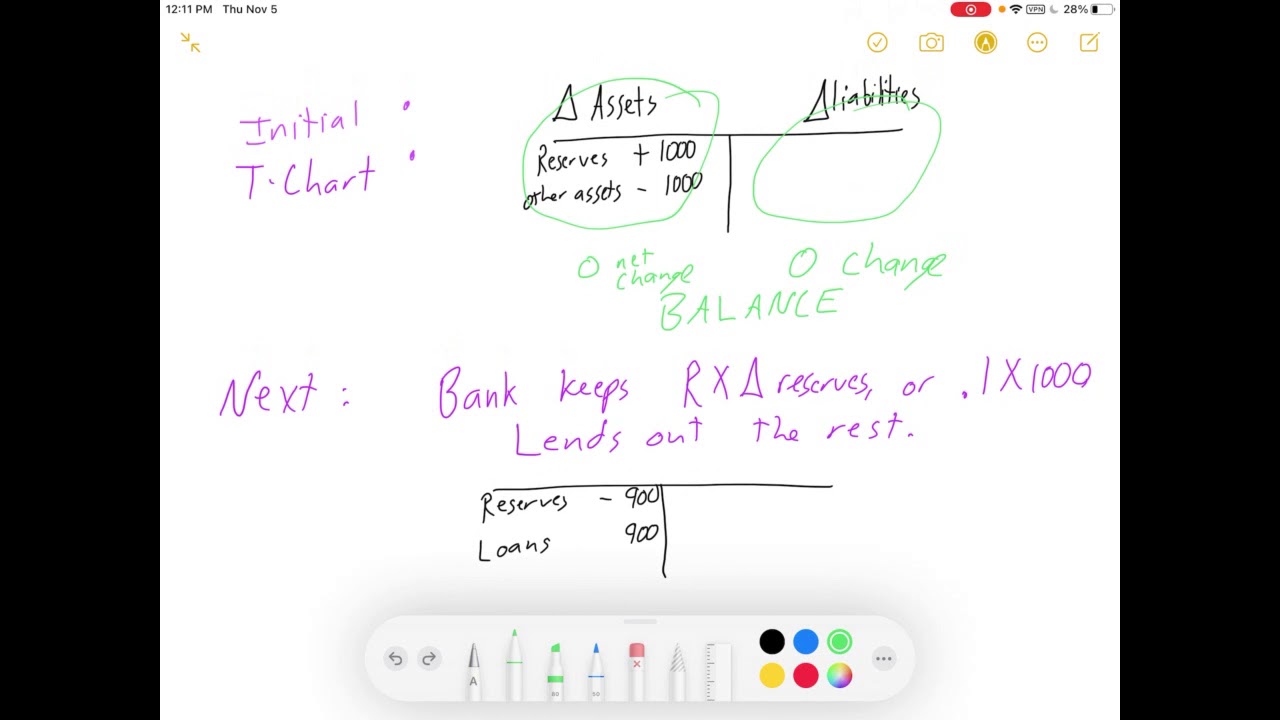 12:11 PM Thu Nov 5
VPN 28%
Δ Assets Δ liabilities
Initial :
T-Chart :
Reserves + 1000
other assets - 1000
0 net change 0 change
BALANCE
Next : Bank keeps R X Δ reserves, or .1 X 1000
Lends out the rest.
Reserves - 900
Loans 900
A 80 50